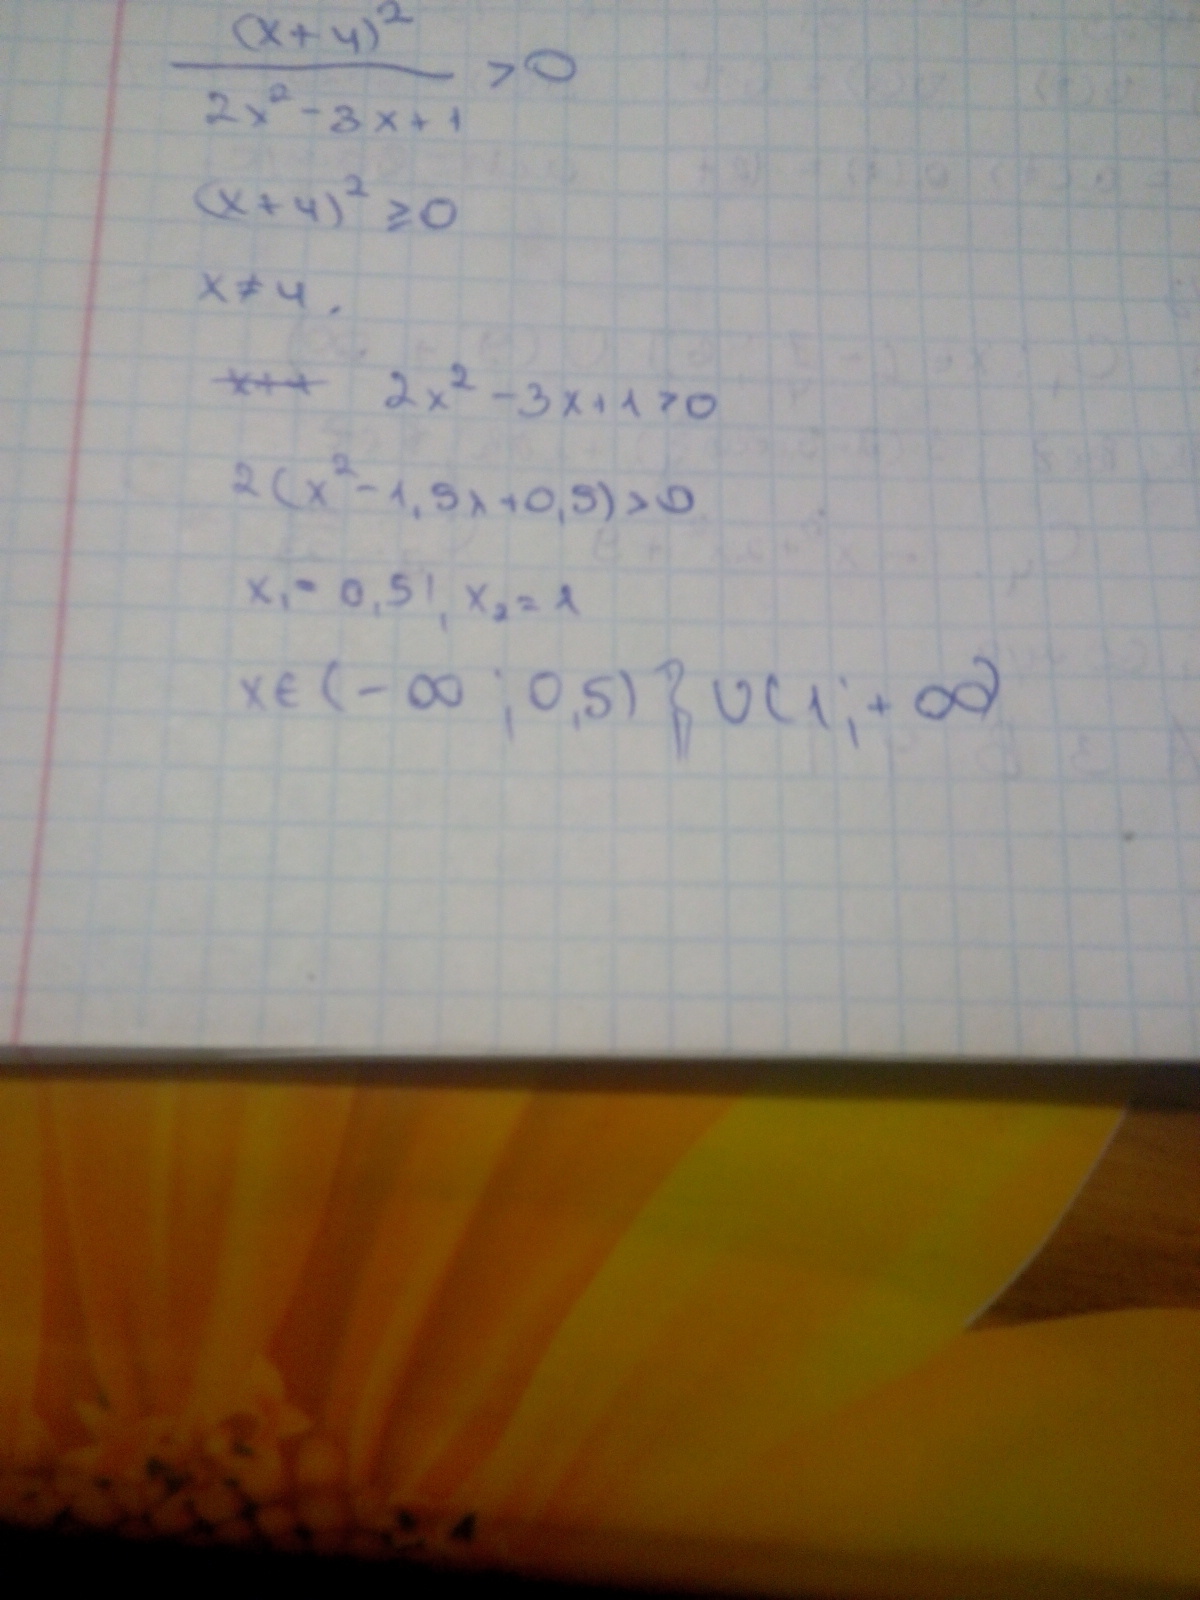 (x+4)²
―――――― >0
2x²-3x+1
(x+4)²≥0
x≠4.
2x²-3x+1>0
2(x²-1,5x+0,5)>0
x₁=0,5; x₂=1
x∈(-∞;0,5)}∪(1;+∞)